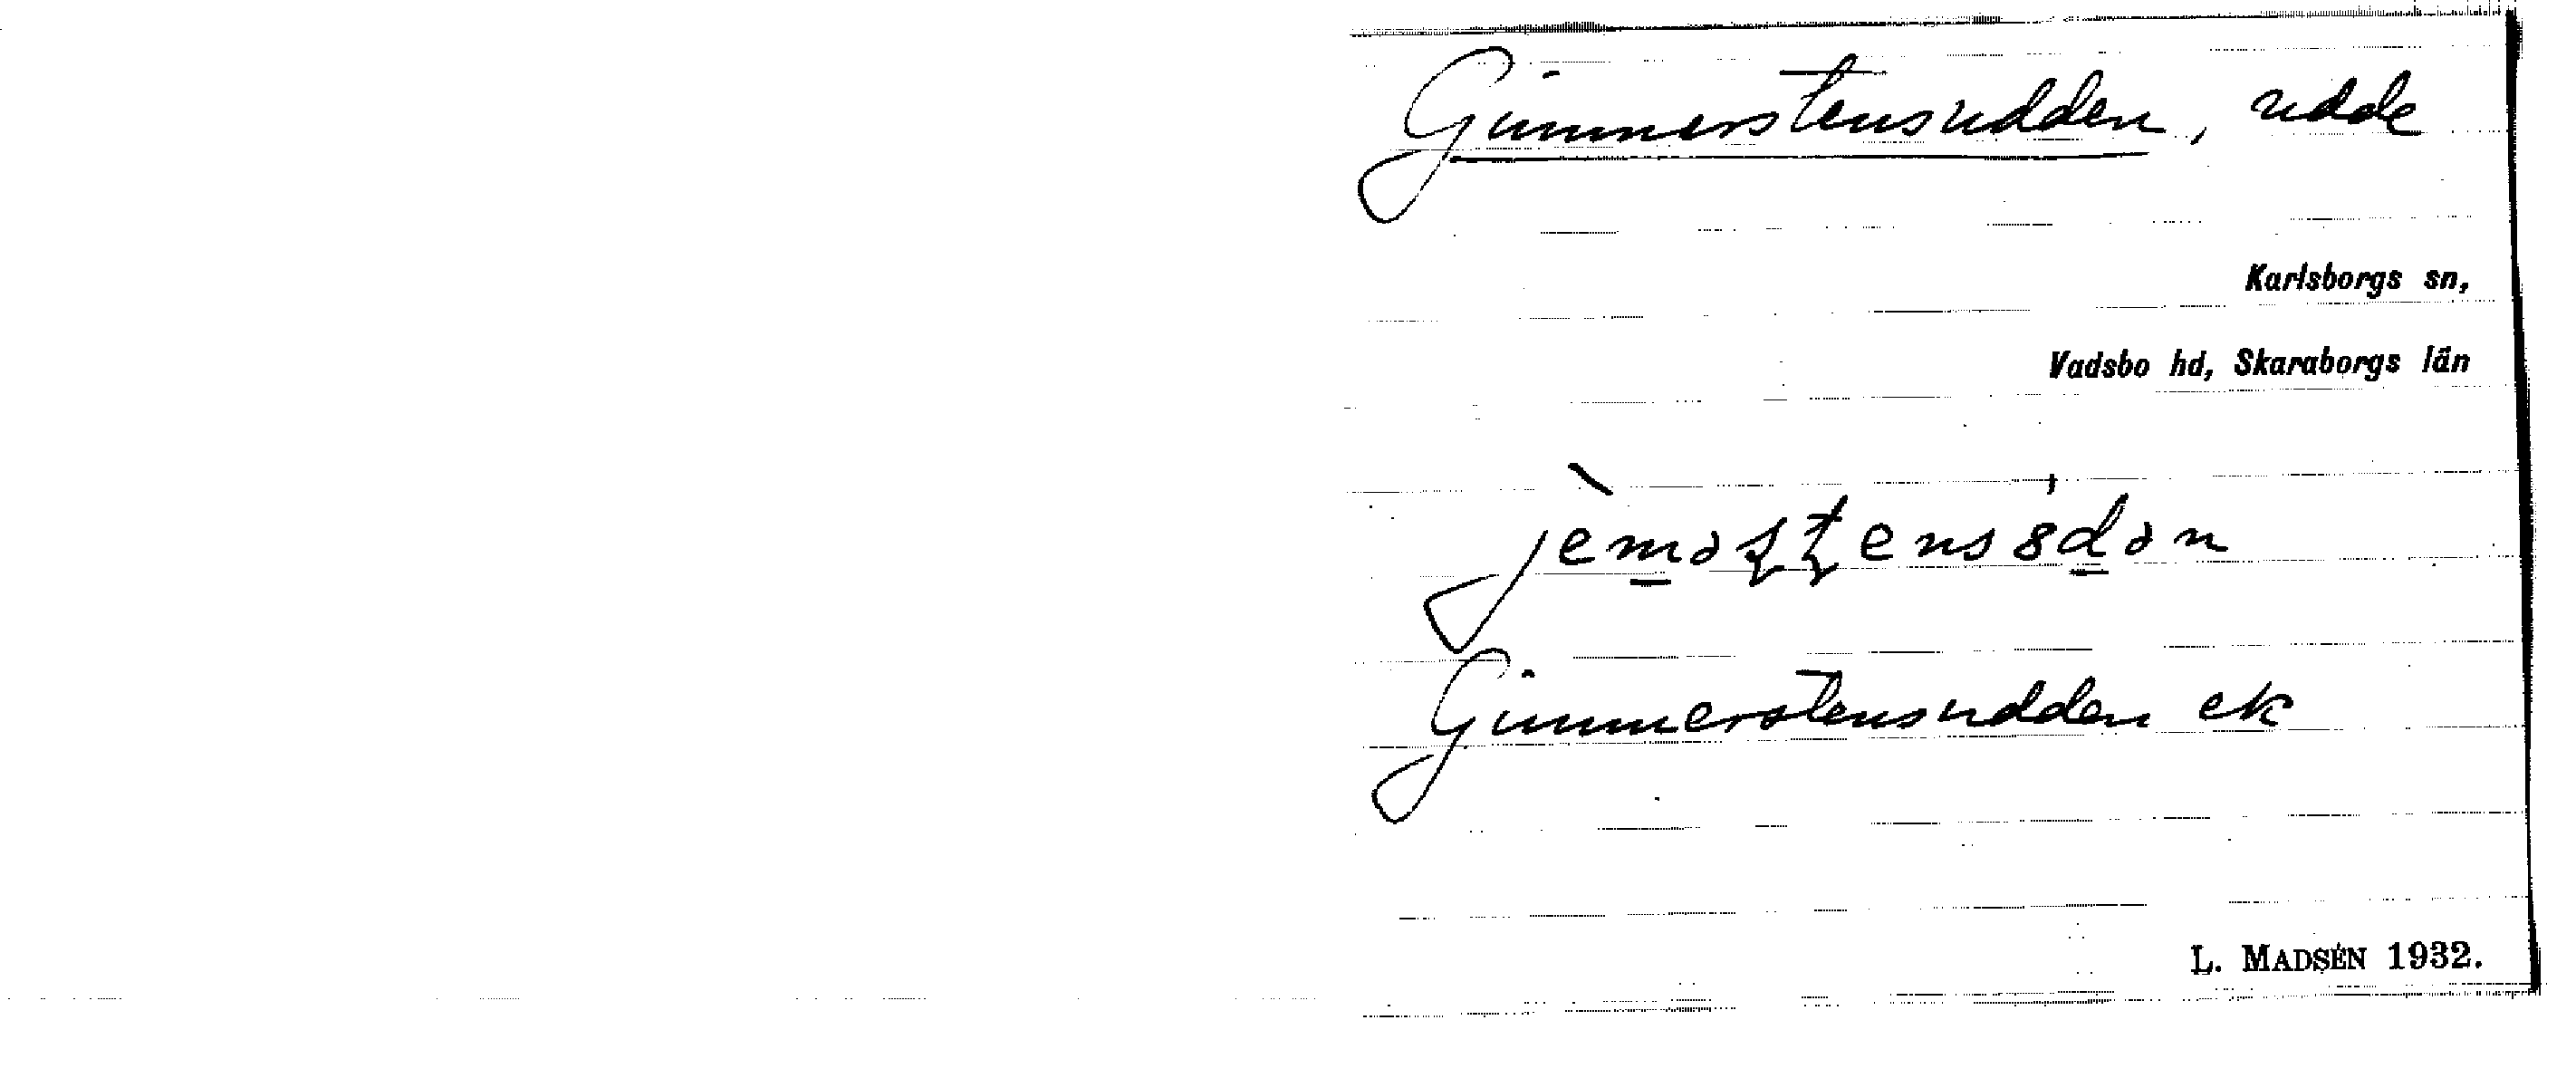 Gimmerstensudden, udde
Karlsborgs sn,
Vadsbo hd, Skaraborgs län
Gimmerstensudden ek
L. MADSÉN 1932.